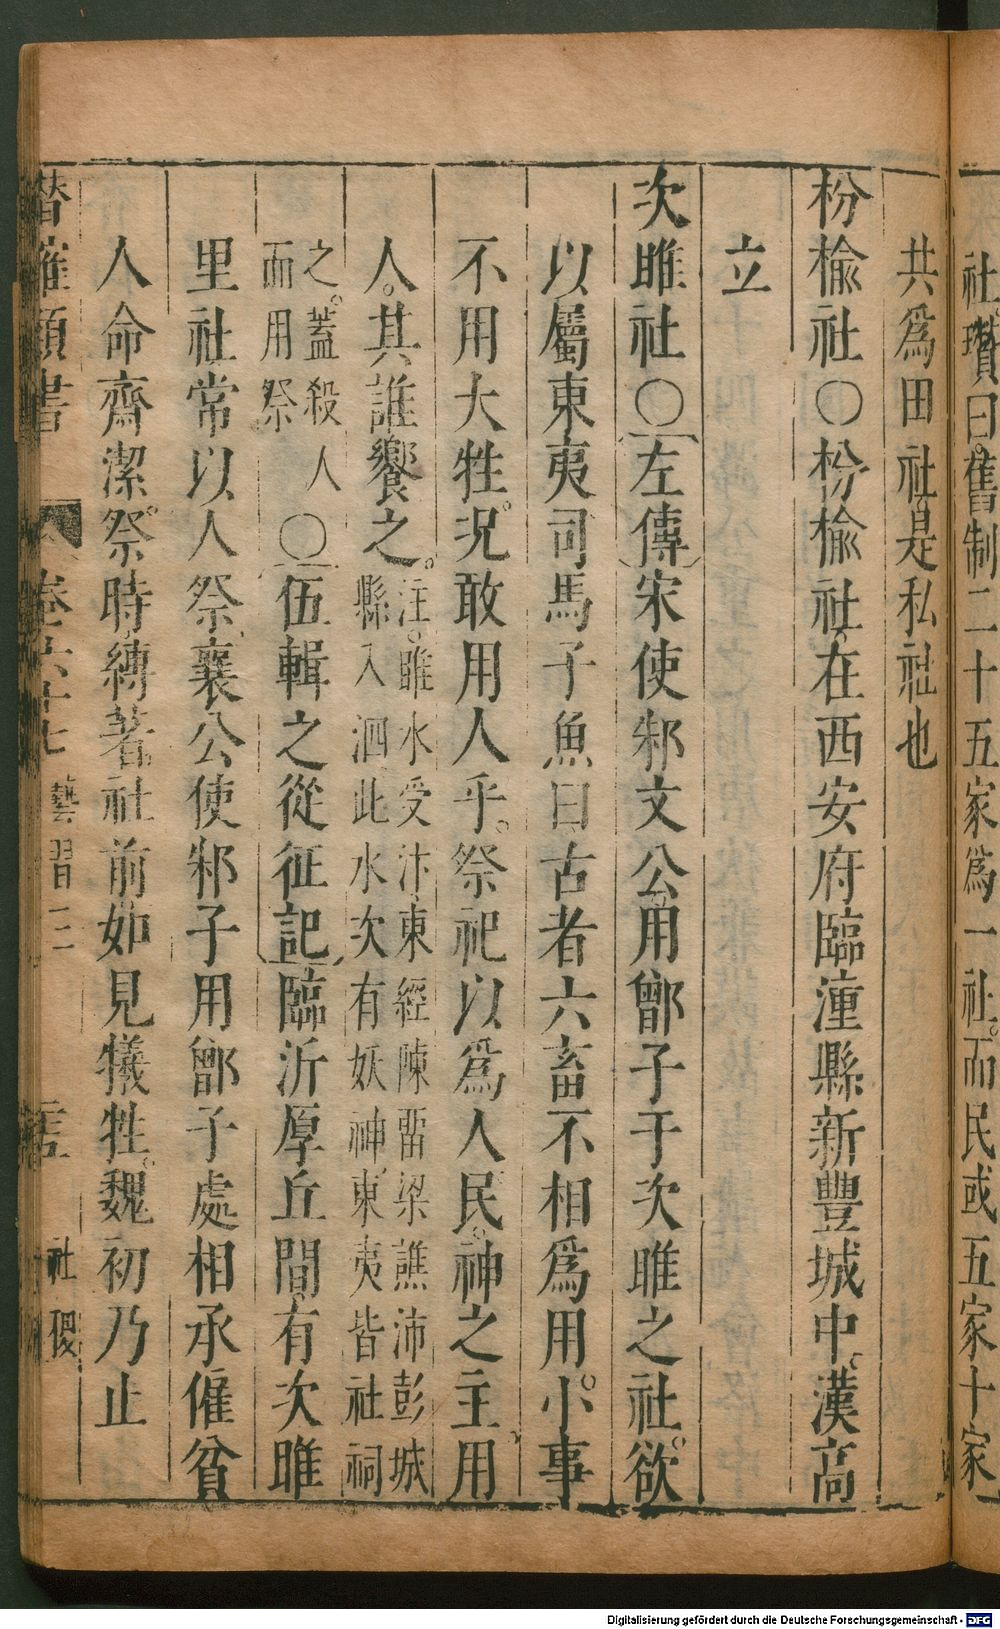 社瓚曰舊制二十五家爲一社而民或五家十家
共爲田社是私社也
枌榆社○枌榆社在西安府臨潼縣新豐城中漢高
立
次睢社○左傳宋使邾文公用鄫子于次睢之社欲
以屬東夷司馬子魚曰古者六畜不相爲用小事
不用大牲況敢用人乎祭祀以爲人民神之主用
人其誰饗之注睢水受汴東經陳留梁譙沛彭城
縣入泗此水次有妖神東夷皆社祠
之蓋殺人
而用祭○伍輯之從征記臨沂厚丘間有次睢
里社常以人祭襄公使邾子用鄫子處相承僱貧
人命齊潔祭時縛著社前如見犧牲魏初乃止
潛確類書 卷六十七 藝習二 社稷
Digitalisierung gefördert durch die Deutsche Forschungsgemeinschaft - DFG